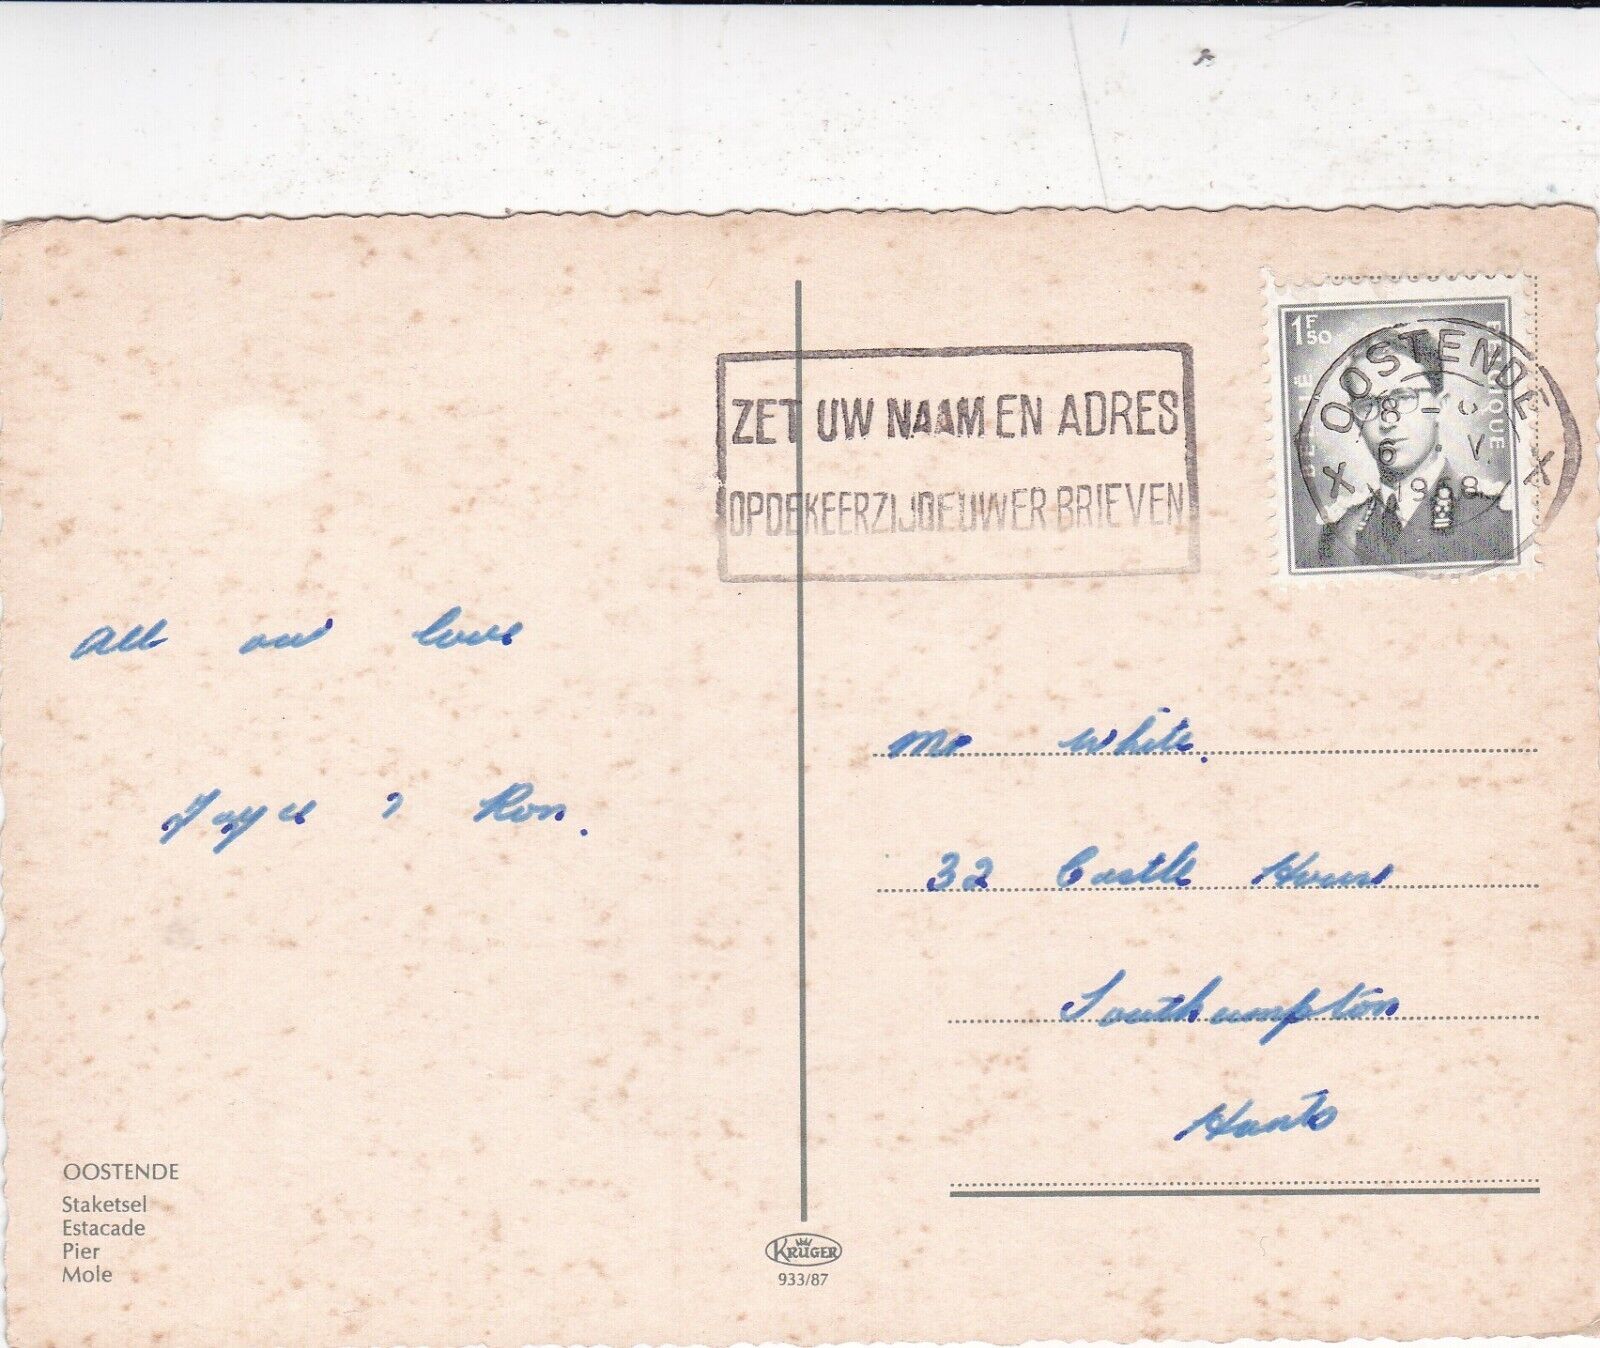 ZET UW NAAM EN ADRES
OP DE KEERZIJDE UWER BRIEVEN
1F50
BELGIË
BELGIQUE
OOSTENDE
1968
All our love
Joyce & Ron.
Mr White.
32 Castle House
Southampton
Hants
OOSTENDE
Staketsel
Estacade
Pier
Mole
KRÜGER
933/87